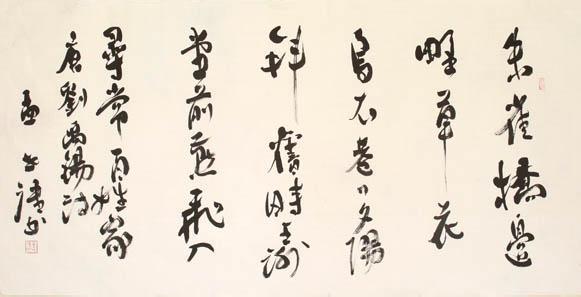 朱雀橋邊
野草花
烏衣巷口夕陽
斜舊時王謝
堂前燕飛入
尋常百姓家
唐劉禹錫詩